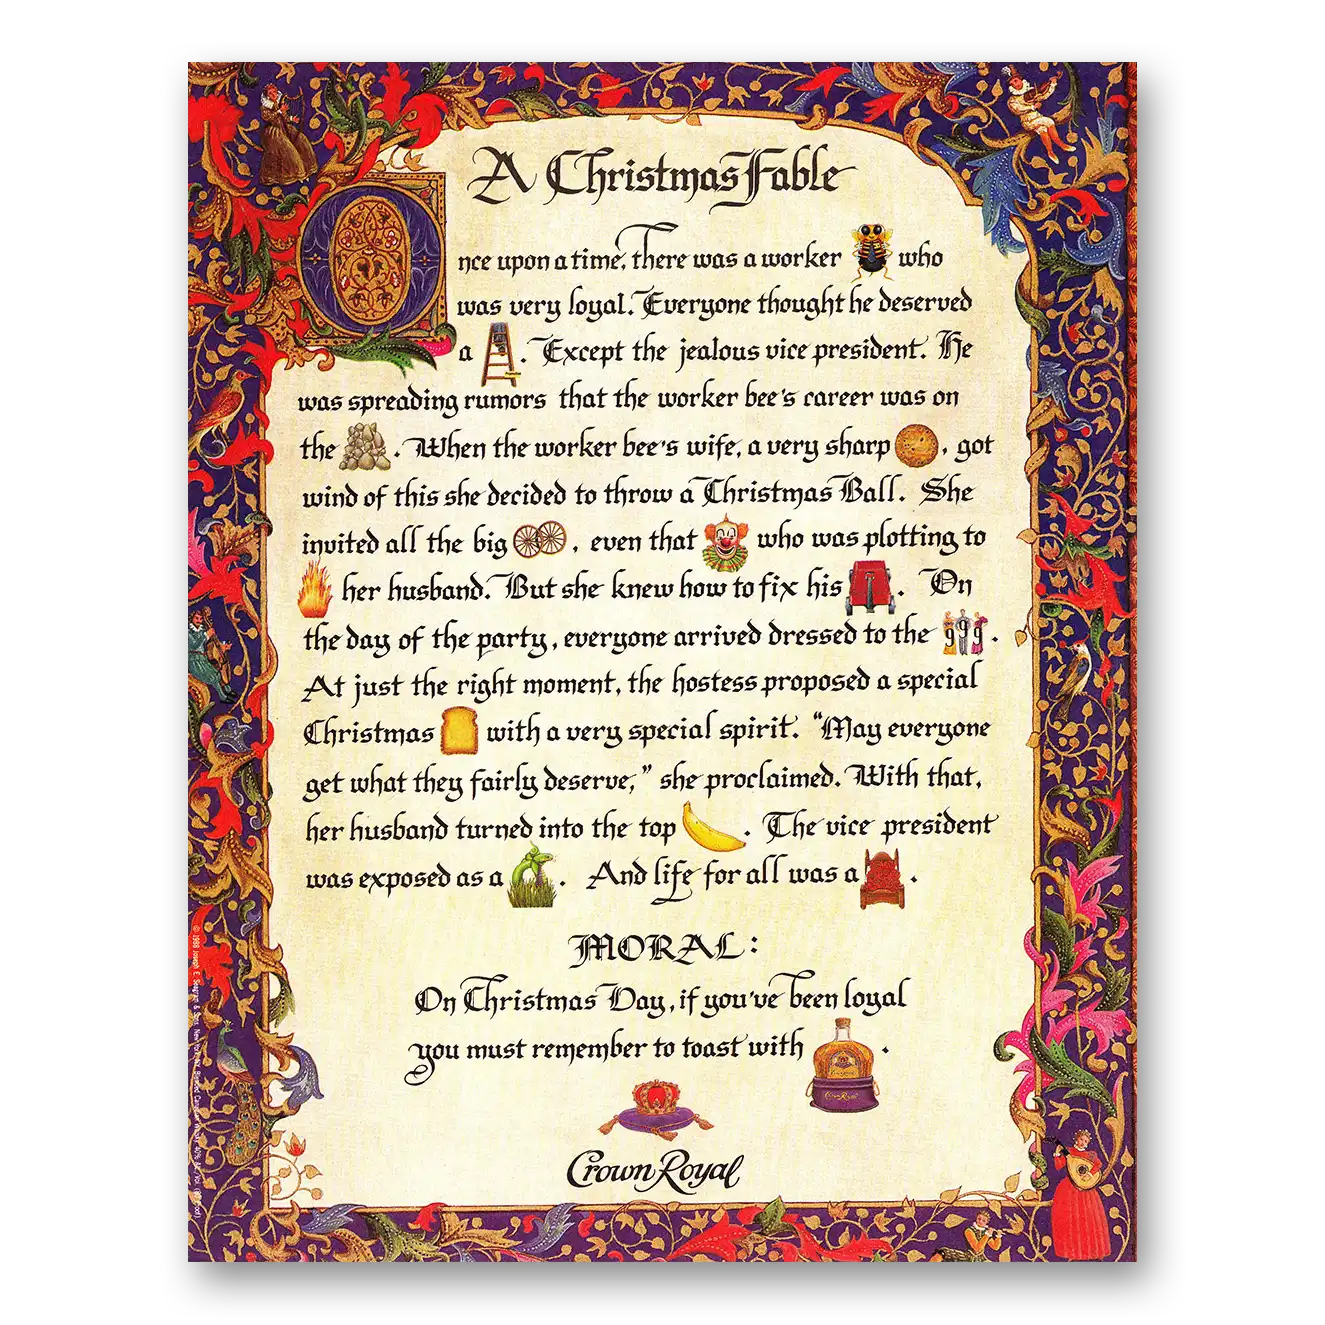 A Christmas Fable
Once upon a time, there was a worker who
was very loyal. Everyone thought he deserved
a . Except the jealous vice president. He
was spreading rumors that the worker bee's career was on
the . When the worker bee's wife, a very sharp , got
wind of this she decided to throw a Christmas Ball. She
invited all the big , even that who was plotting to
her husband. But she knew how to fix his . On
the day of the party, everyone arrived dressed to the 999.
At just the right moment, the hostess proposed a special
Christmas with a very special spirit. "May everyone
get what they fairly deserve," she proclaimed. With that,
her husband turned into the top . The vice president
was exposed as a . And life for all was a .
MORAL:
On Christmas Day, if you've been loyal
you must remember to toast with .
Crown Royal
Crown Royal
© 1988 Joseph E. Seagram & Sons, New York, N.Y.